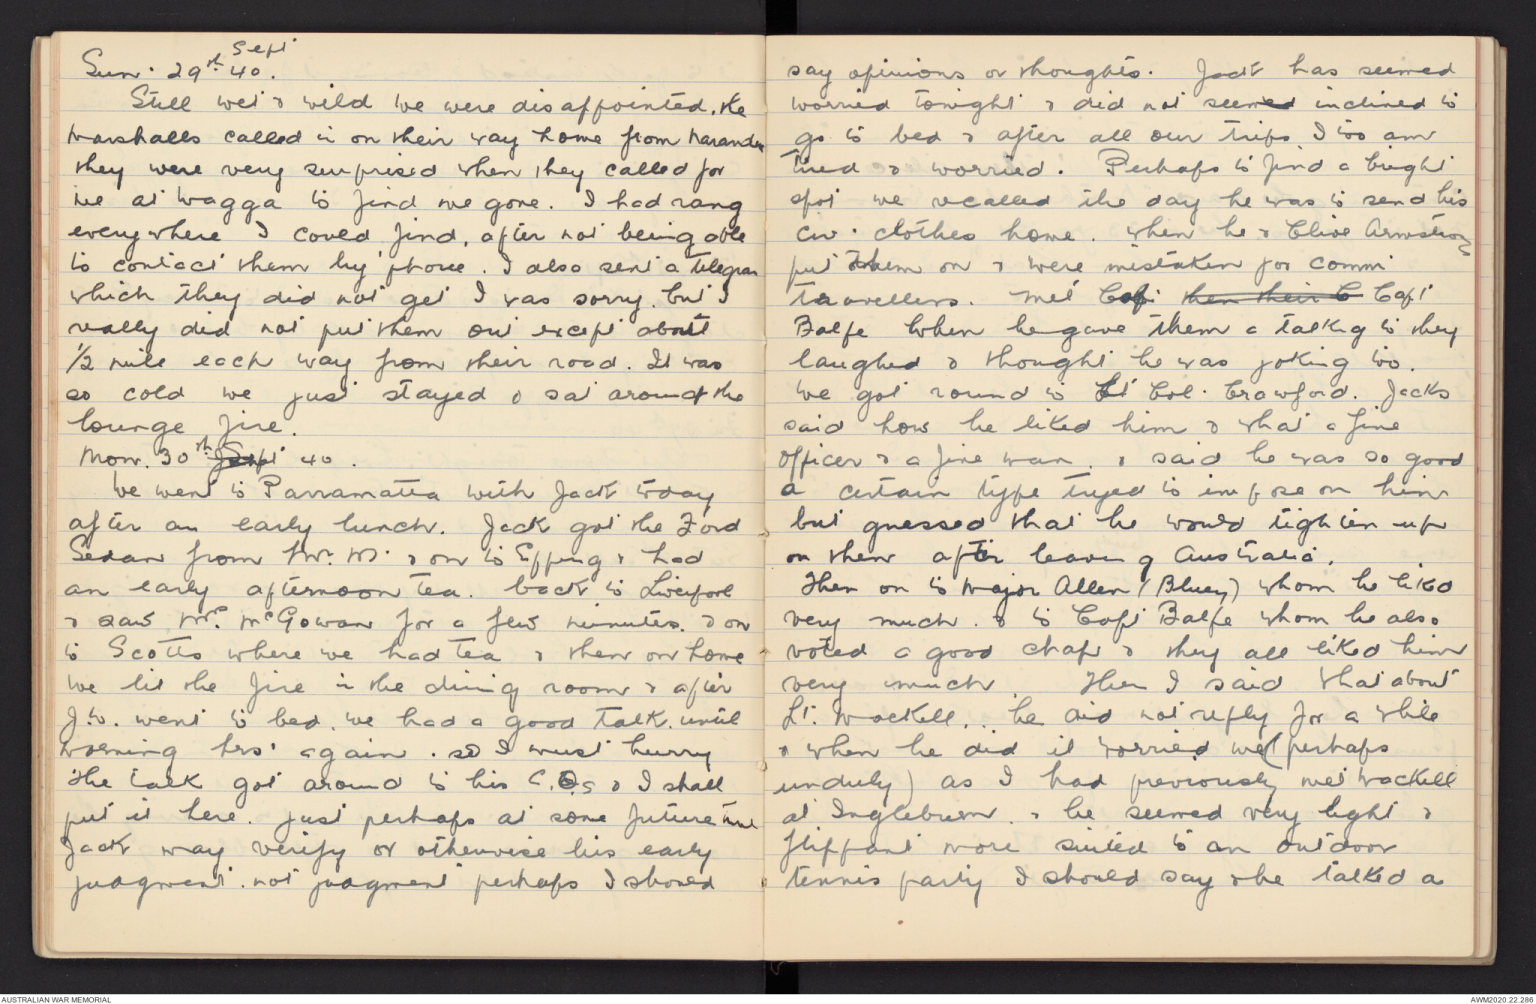 Sun. 29th Sept 40.
Still wet & wild we were disappointed. The
Marshalls called in on their way home from Narandra
they were very surprised when they called for
me at Wagga to find me gone. I had rang
everywhere I could find, after not being able
to contact them by phone. I also sent a telegram
which they did not get I was sorry. but I
really did not put them out except about
1/2 mile each way from their road. It was
so cold we just stayed & sat around the
lounge fire.
Mon. 30th Sept 40.
We went to Parramatta with Jack today
after an early lunch. Jack got the Ford
Sedan from Mr. M. & on to Epping & had
an early afternoon tea. back to Liverpool
& saw Mr. McGowan for a few minutes. & on
to Scotts where we had tea & then on home
We lit the fire in the dining room & after
J. W. went to bed. we had a good talk. until
morning hrs. again. so I must hurry
The talk got around to his C.O.s & I shall
put it here. just perhaps at some future time
Jack may verify or otherwise his early
judgment. not judgment perhaps I should
say opinions or thoughts. Jack has seemed
worried tonight & did not seemed inclined to
go to bed & after all our trips I too am
tired & worried. Perhaps to find a bright
spot we recalled the day he was to send his
civ. clothes home. When he & Clive Armstrong
put them on & were mistaken for comm.
travellers. met Capt then their C Capt
Balfe When he gave them a talking to they
laughed & thought he was joking too.
We got round to Lt Col. Crawford. Jacks
said how he liked him & what a fine
officer & a fine man. & said he was so good
a certain type tryed to impose on him
but guessed that he would tighten up
on them after leaving Australia.
Then on to Major Allen (Bluey) whom he liked
very much. & to Capt Balfe whom he also
voted a good chap & they all liked him
very much. Then I said What about
Lt. Mackell... he did not reply for a while
& when he did it worried me (perhaps
unduly) as I had previously met Mackell
at Ingleburn. & he seemed very light &
flippant more suited to an outdoor
tennis party I should say & he talked a
AUSTRALIAN WAR MEMORIAL
AWM2020.22.286